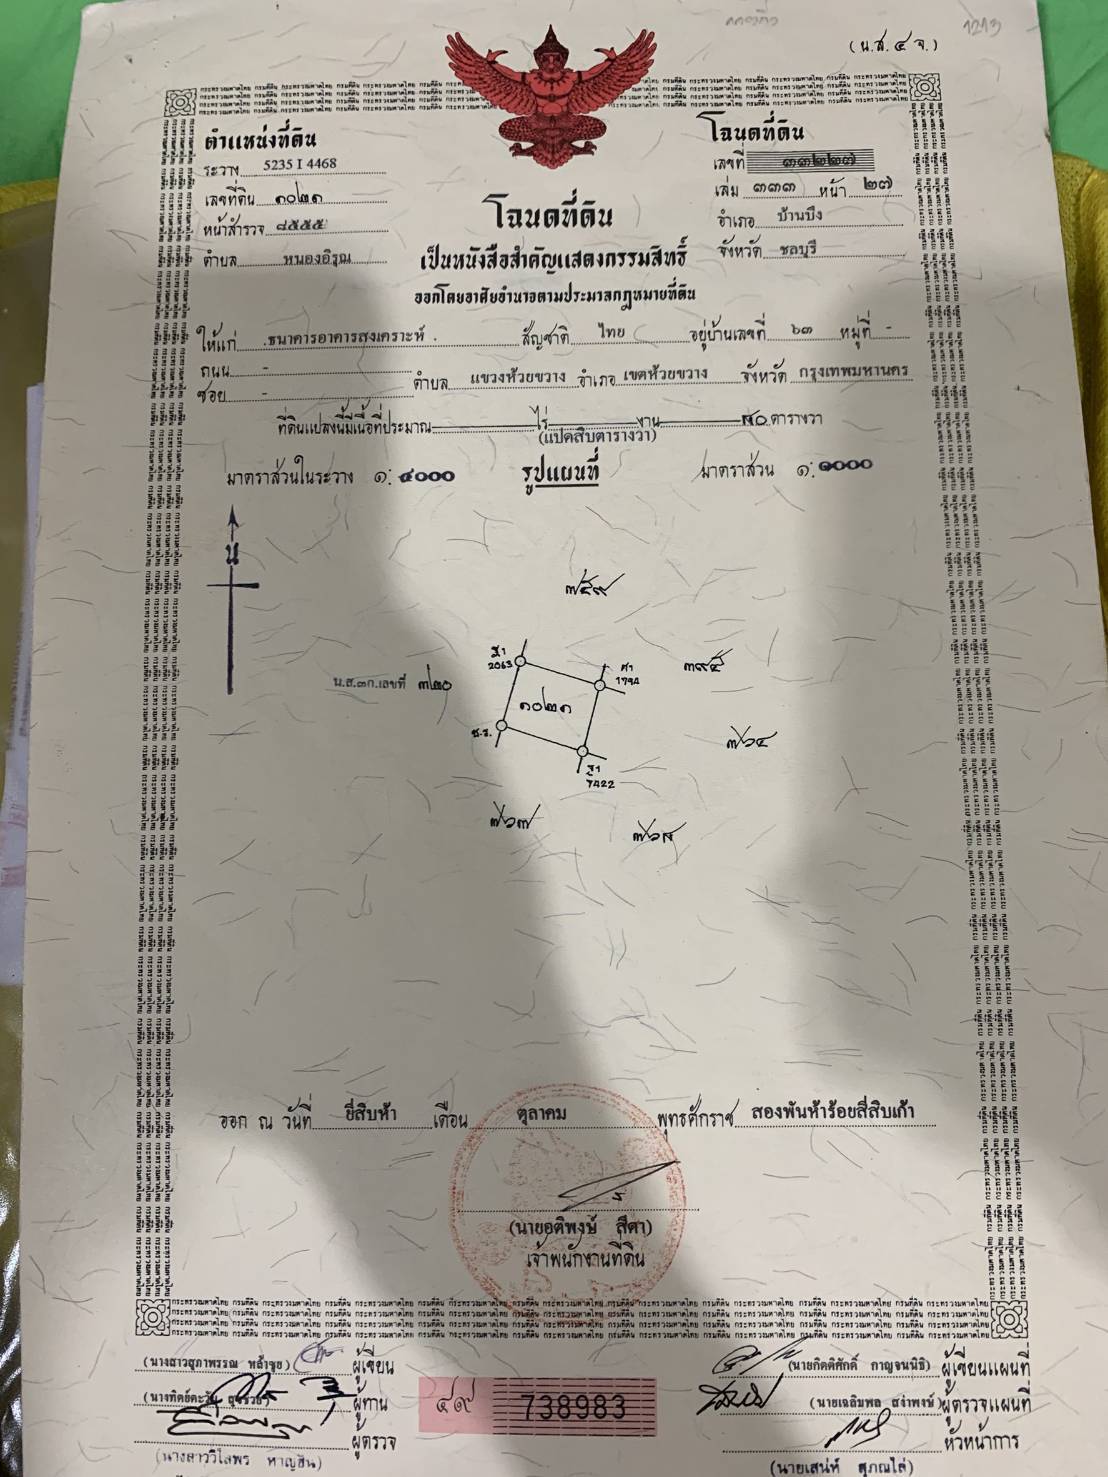 (น.ส. ๔ จ.)
ตำแหน่งที่ดิน
ระวาง 5235 I 4468
เลขที่ดิน ๑๐๒๑
หน้าสำรวจ ๘๕๕๕
ตำบล หนองอิรุณ
โฉนดที่ดิน
เลขที่ ๓๓๒๒๗
เล่ม ๓๓๓ หน้า ๒๗
อำเภอ บ้านบึง
จังหวัด ชลบุรี
โฉนดที่ดิน
เป็นหนังสือสำคัญแสดงกรรมสิทธิ์
ออกโดยอาศัยอำนาจตามประมวลกฎหมายที่ดิน
ให้แก่ ธนาคารอาคารสงเคราะห์ สัญชาติ ไทย อยู่บ้านเลขที่ ๖๓ หมู่ที่ -
ถนน -
ซอย - ตำบล แขวงห้วยขวาง อำเภอ เขตห้วยขวาง จังหวัด กรุงเทพมหานคร
ที่ดินแปลงนี้มีเนื้อที่ประมาณ ไร่ งาน ๘๐ ตารางวา
(แปดสิบตารางวา)
มาตราส่วนในระวาง ๑:๔๐๐๐ รูปแผนที่ มาตราส่วน ๑:๑๐๐๐
น
๗๕๙
๓๙๕
2063
1794
น.ส.๓ก.เลขที่ ๓๒๐
๑๐๒๑
๗๖๔
7422
๗๖๗
๗๖๘
ออก ณ วันที่ ยี่สิบห้า เดือน ตุลาคม พุทธศักราช สองพันห้าร้อยสี่สิบเก้า
(นายอติพงษ์ สีดา)
เจ้าพนักงานที่ดิน
ผู้เขียน
(นายกิตติศักดิ์ กาญจนนิธิ) ผู้เขียนแผนที่
ผู้ทาน
(นายเฉลิมพล สง่าพงษ์) ผู้ตรวจแผนที่
๔๙ 738983
ผู้ตรวจ
หัวหน้าการ
(นางสาววิไลพร หาญฮิน)